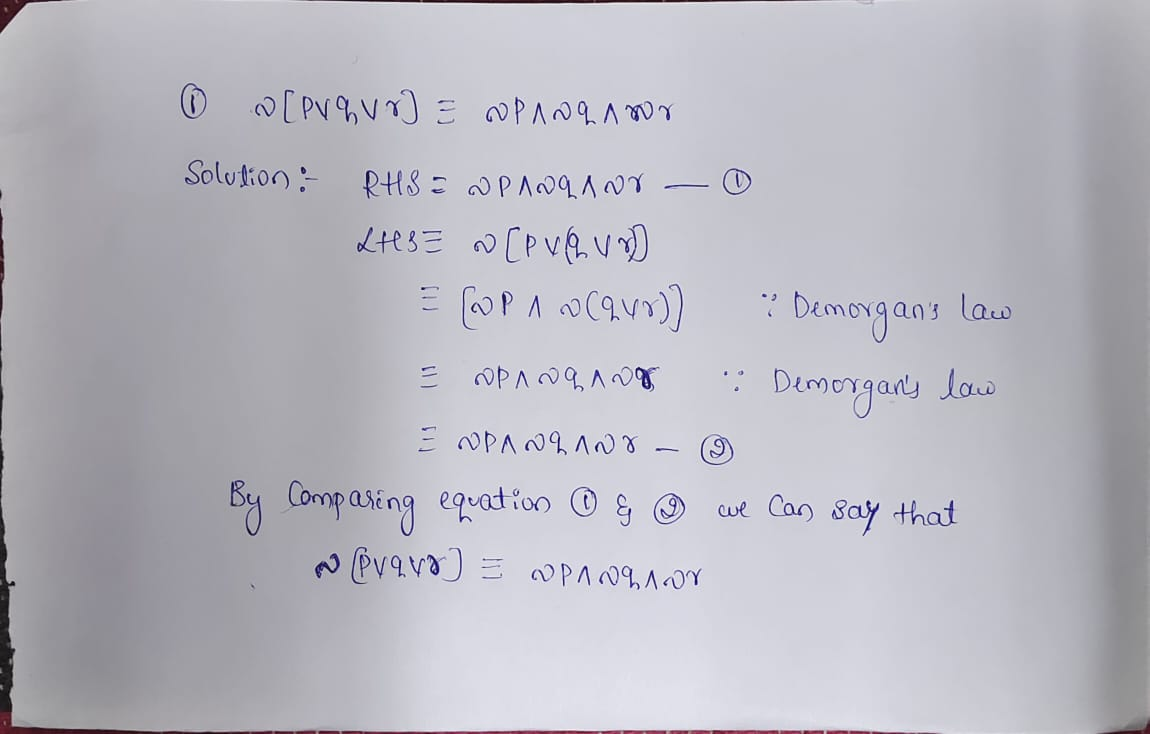 ① ~[P∨q∨r] ≡ ~P∧~q∧~r
Solution:- RHS = ~P∧~q∧~r — ①
LHS ≡ ~[P∨(q∨r)]
≡ [~P ∧ ~(q∨r)] ∵ Demorgan's law
≡ ~P∧~q∧~r ∵ Demorgan's law
≡ ~P∧~q∧~r — ②
By Comparing equation ① & ② we Can say that
~[P∨q∨r] ≡ ~P∧~q∧~r